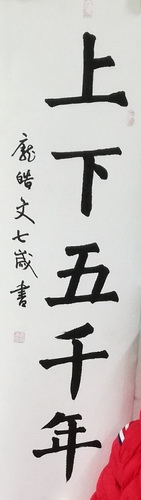 上下五千年
龐皓文七歲書